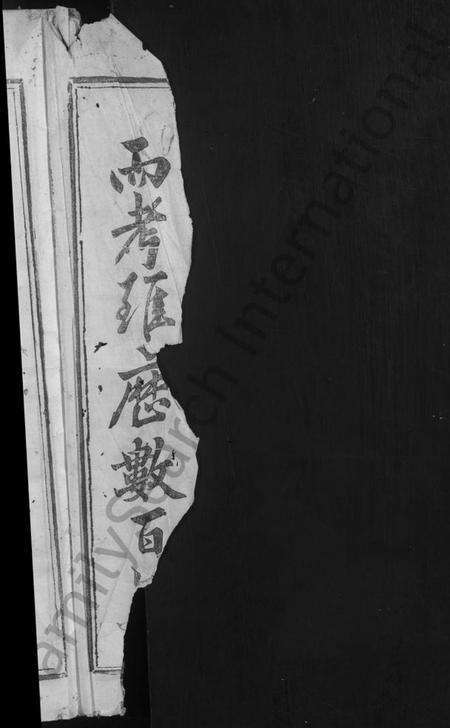 而考琟
歴數百
FamilySearch International